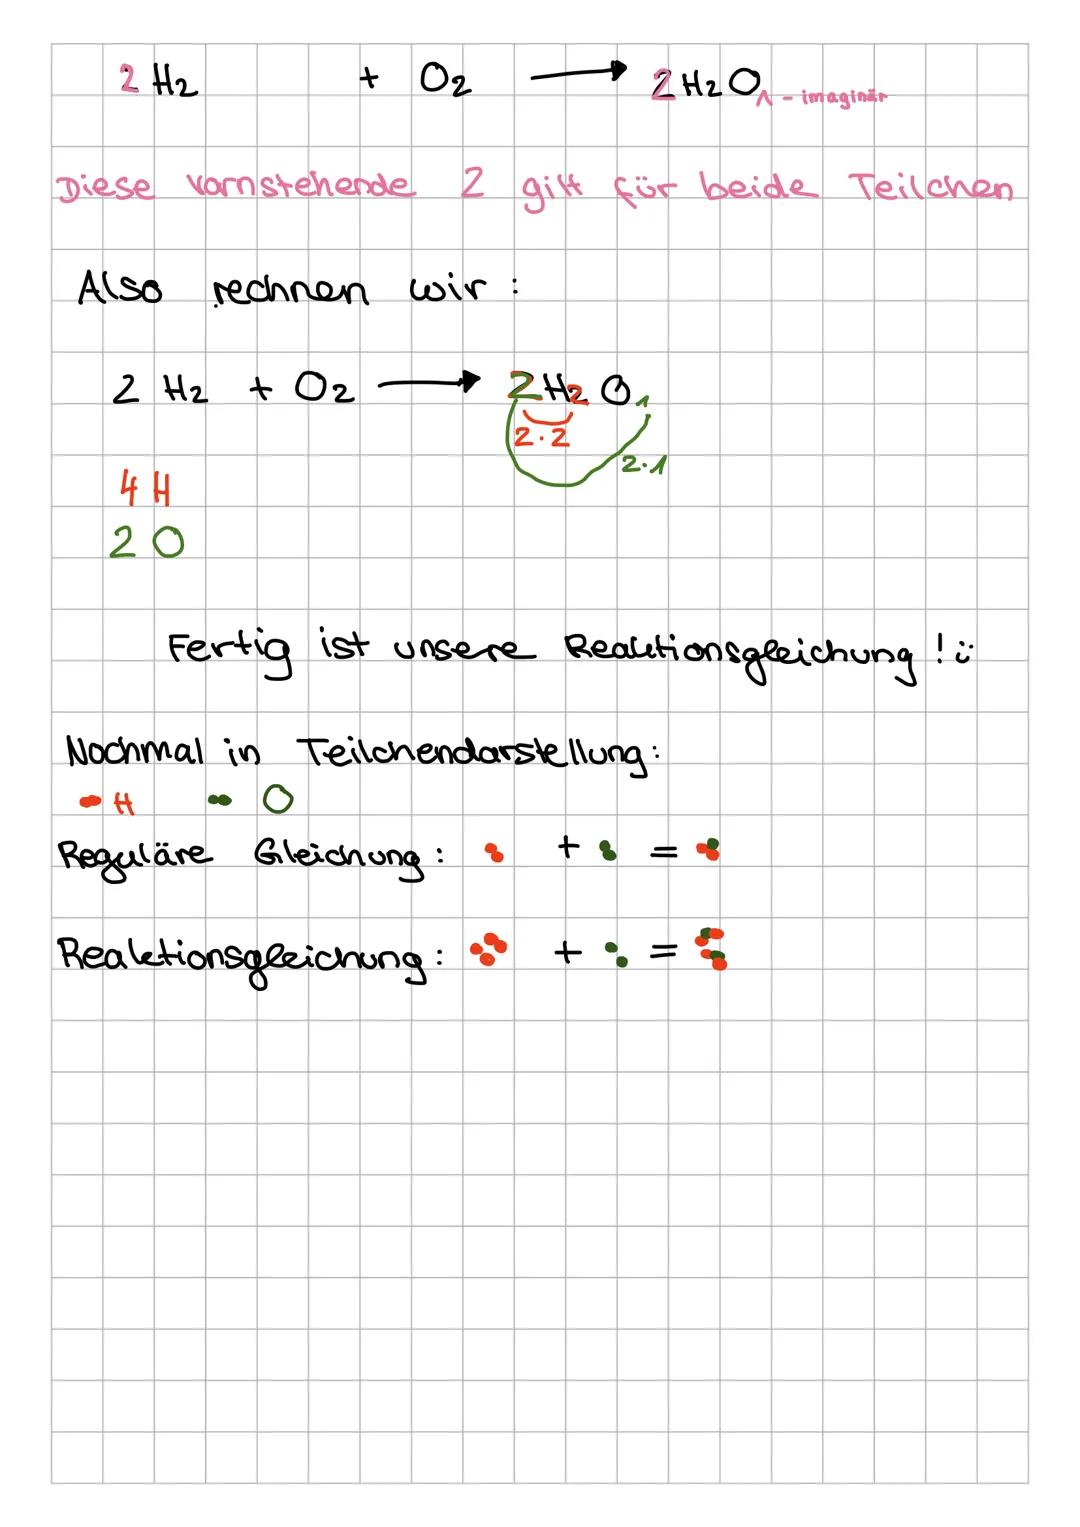 2 H2 + O2 → 2 H2O 1 - imaginär
Diese vornstehende 2 gilt für beide Teilchen
Also rechnen wir :
2 H2 + O2 → 2 H2 O 1
2·2
2·1
4 H
2 O
Fertig ist unsere Reaktionsgleichung ! ü
Nochmal in Teilchendarstellung :
H O
Reguläre Gleichung : + =
Reaktionsgleichung : + =